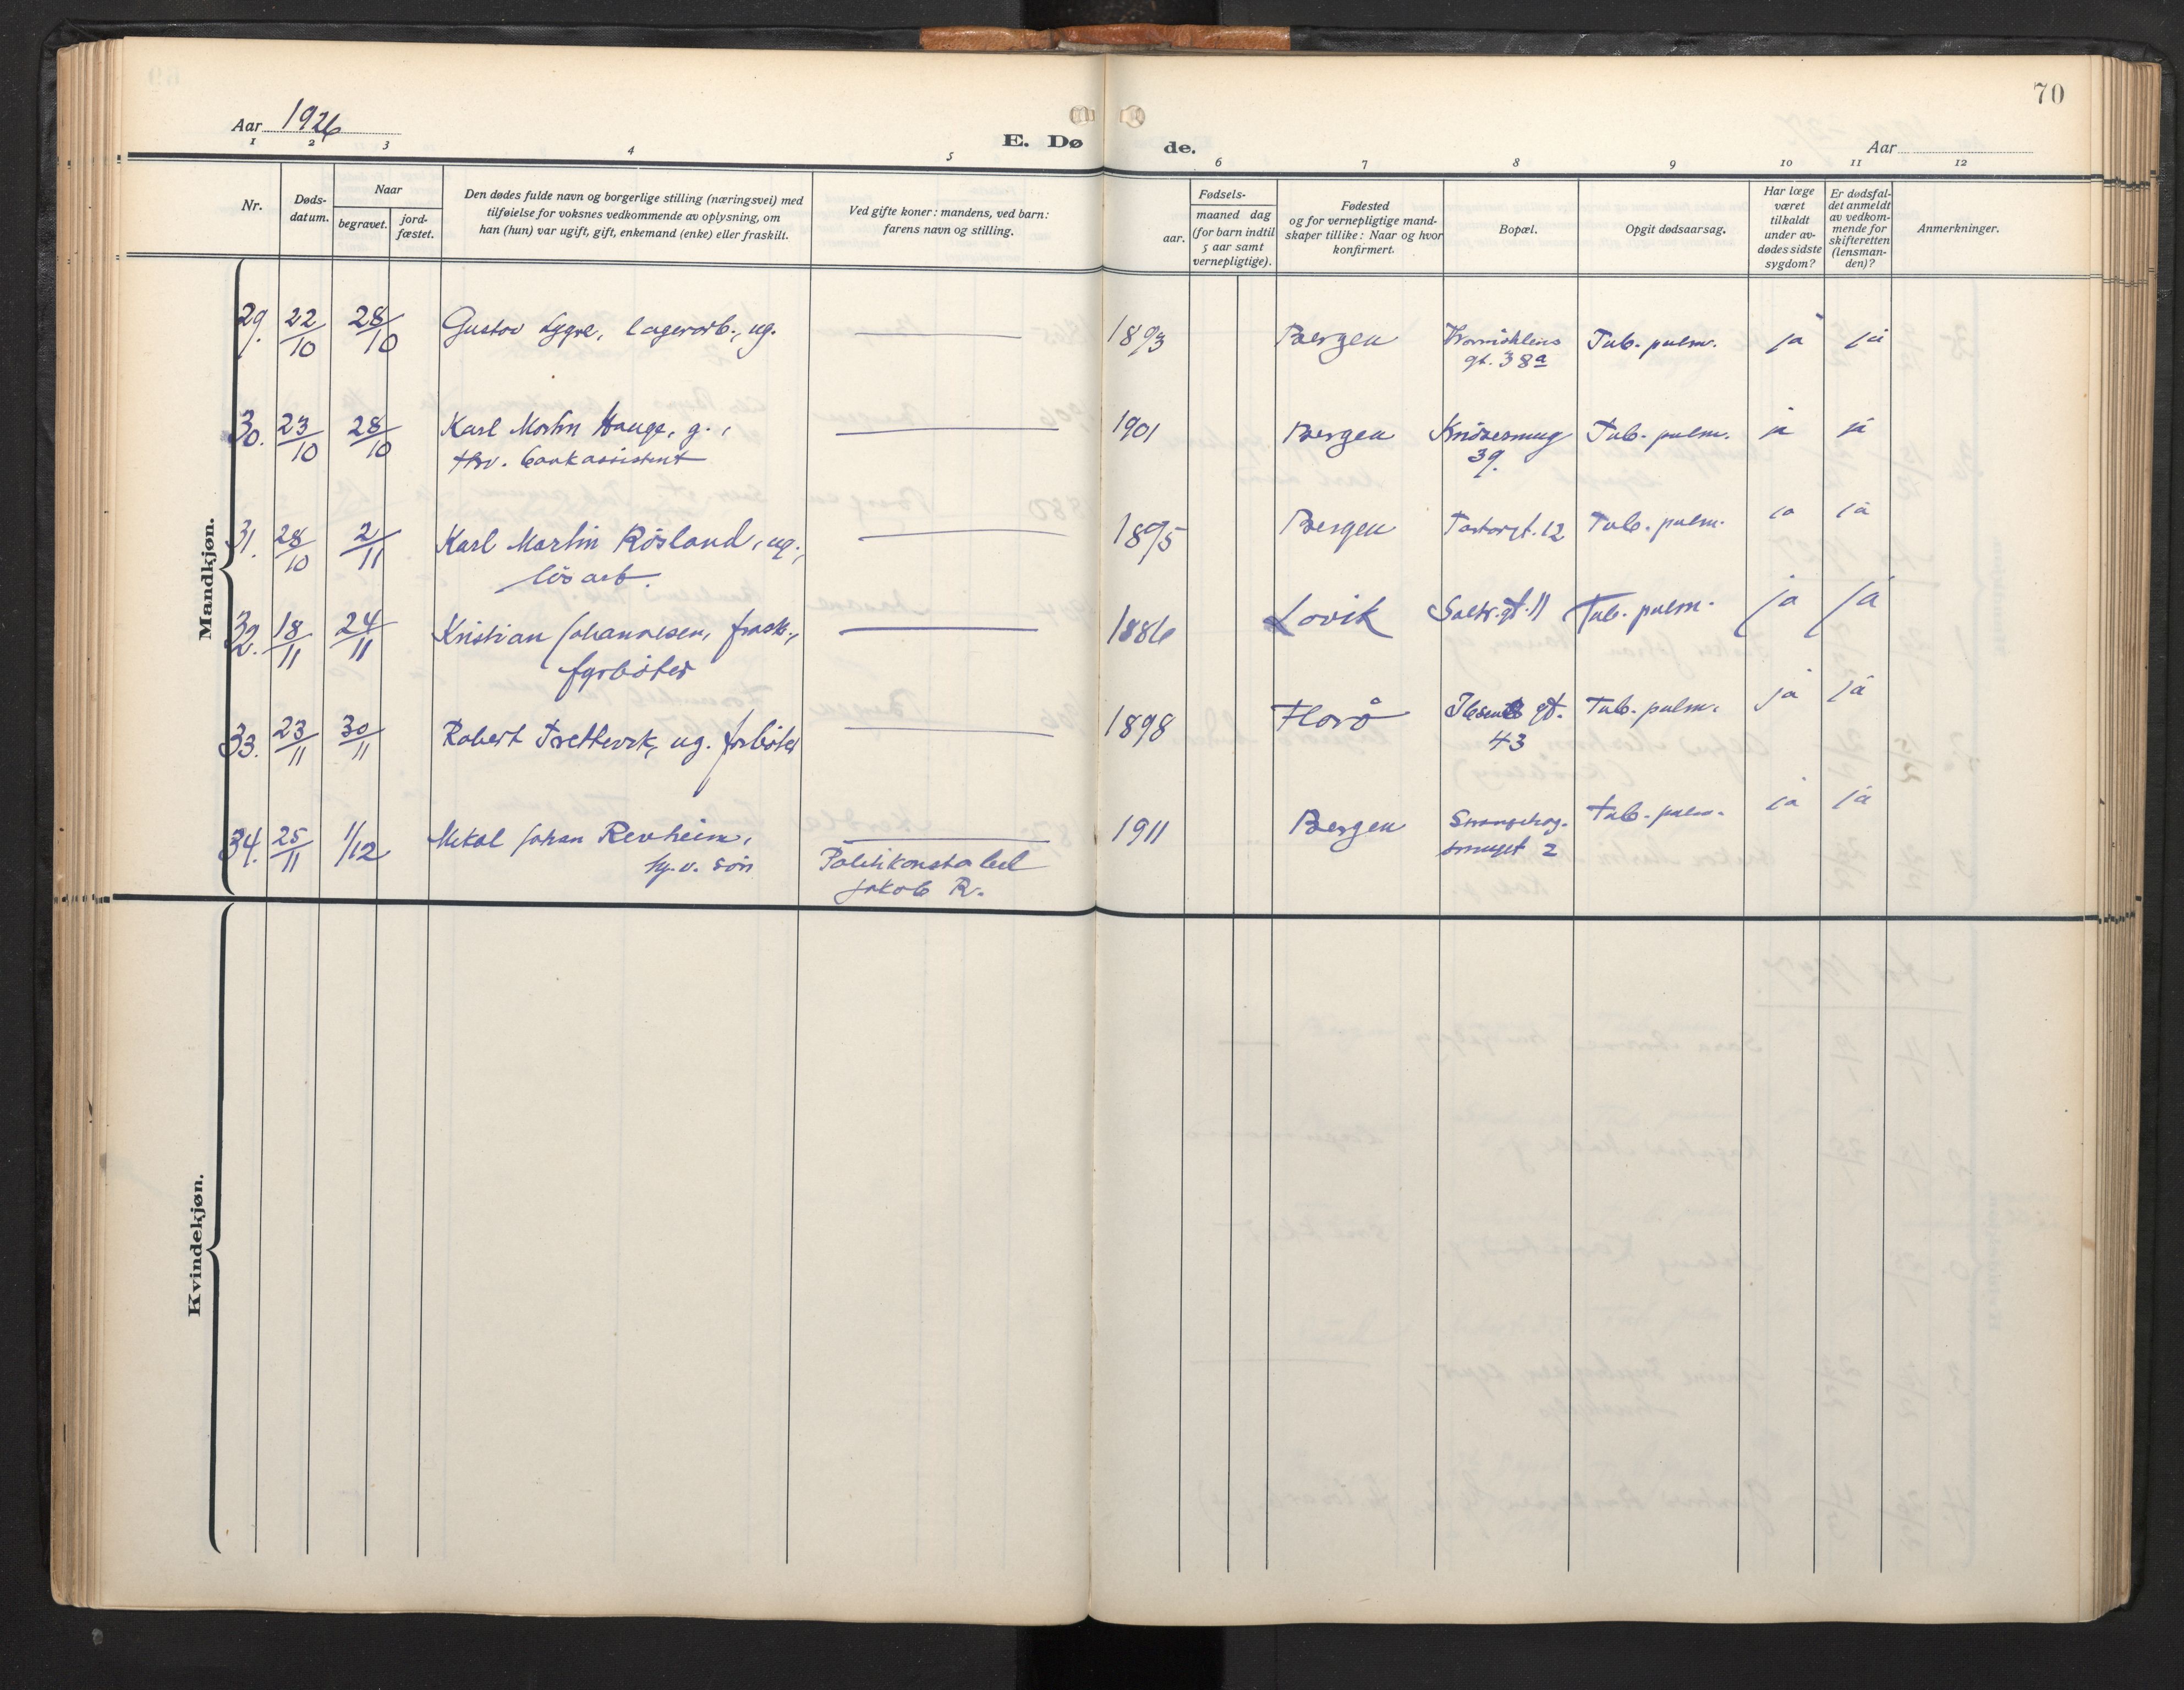 70
Aar 1926
E. Dø de.
Aar
1 2 3 4 5 6 7 8 9 10 11 12
Nr.
Døds-
datum.
Naar
begravet.
jord-
fæstet.
Den dødes fulde navn og borgerlige stilling (næringsvei) med
tilføielse for voksnes vedkommende av oplysning, om
han (hun) var ugift, gift, enkemand (enke) eller fraskilt.
Ved gifte koner: mandens, ved barn:
farens navn og stilling.
Fødsels-
aar.
maaned dag
(for barn indtil
5 aar samt
vernepligtige).
Fødested
og for vernepligtige mand-
skaper tillike: Naar og hvor
konfirmert.
Bopæl.
Opgit dødsaarsag.
Har læge
været
tilkaldt
under av-
dødes sidste
sygdom?
Er dødsfal-
det anmeldt
av vedkom-
mende for
skifteretten
(lensman-
den)?
Anmerkninger.
Mandkjøn.
29. 22/10 28/10 Gustav Lygre, lagerarb., ug. 1893 Bergen gt. 38a Tub. pulm. ja ja
30. 23/10 28/10 Karl Martin Hauge, g., 1901 Bergen Knøsesmug Tub. pulm. ja ja
fhv. bankassistent 39.
31. 28/10 2/11 Karl Martin Røsland, ug., 1895 Bergen gt. 12 Tub. pulm. ja ja
løsarb.
32. 18/11 24/11 Kristian Johannesen, frask., 1886 Lavik Saltv. gt. 11 Tub. pulm. ja ja
fyrbøter
33. 23/11 30/11 Robert ug. fyrbøter 1898 Florø Ibsens gt. Tub. pulm. ja ja
43
34. 25/11 1/12 Mikal Johan Revheim, 1911 Bergen Tub. pulm. ja ja
hj.v. søn Politikonstabel smuget 2
Jakob R.
Kvindekjøn.